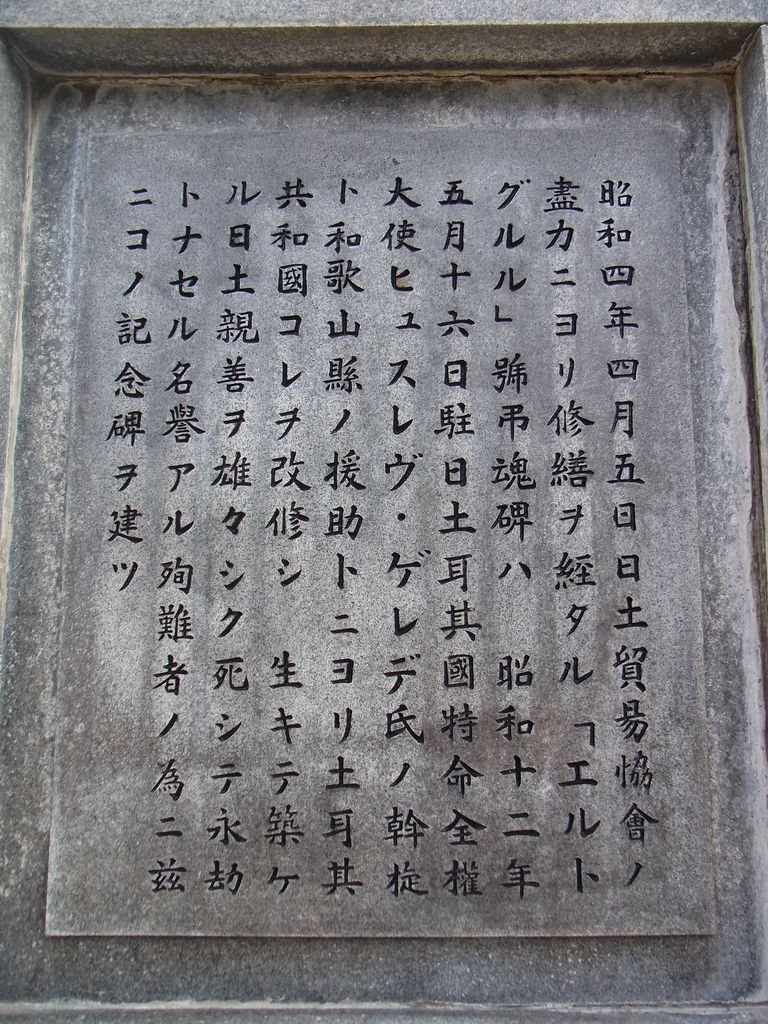 昭和四年四月五日日土貿易協會ノ
盡力ニヨリ修繕ヲ經タル「エルト
グルル」號弔魂碑ハ　昭和十二年
五月十六日駐日土耳其國特命全權
大使ヒュスレヴ・ゲレデ氏ノ斡旋
ト和歌山縣ノ援助トニヨリ土耳其
共和國コレヲ改修シ　生キテ築ケ
ル日土親善ヲ雄々シク死シテ永劫
トナセル名譽アル殉難者ノ為ニ茲
ニコノ記念碑ヲ建ツ